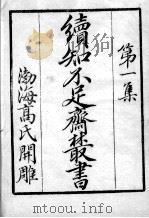 第一集
續知不足齋叢書
渤海高氏開雕